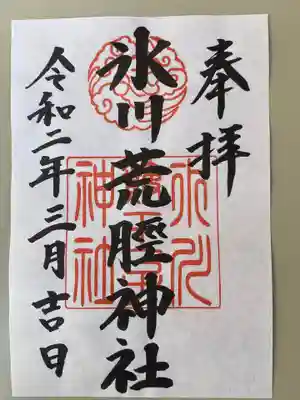 奉拝
氷川荒脛神社
令和二年三月吉日